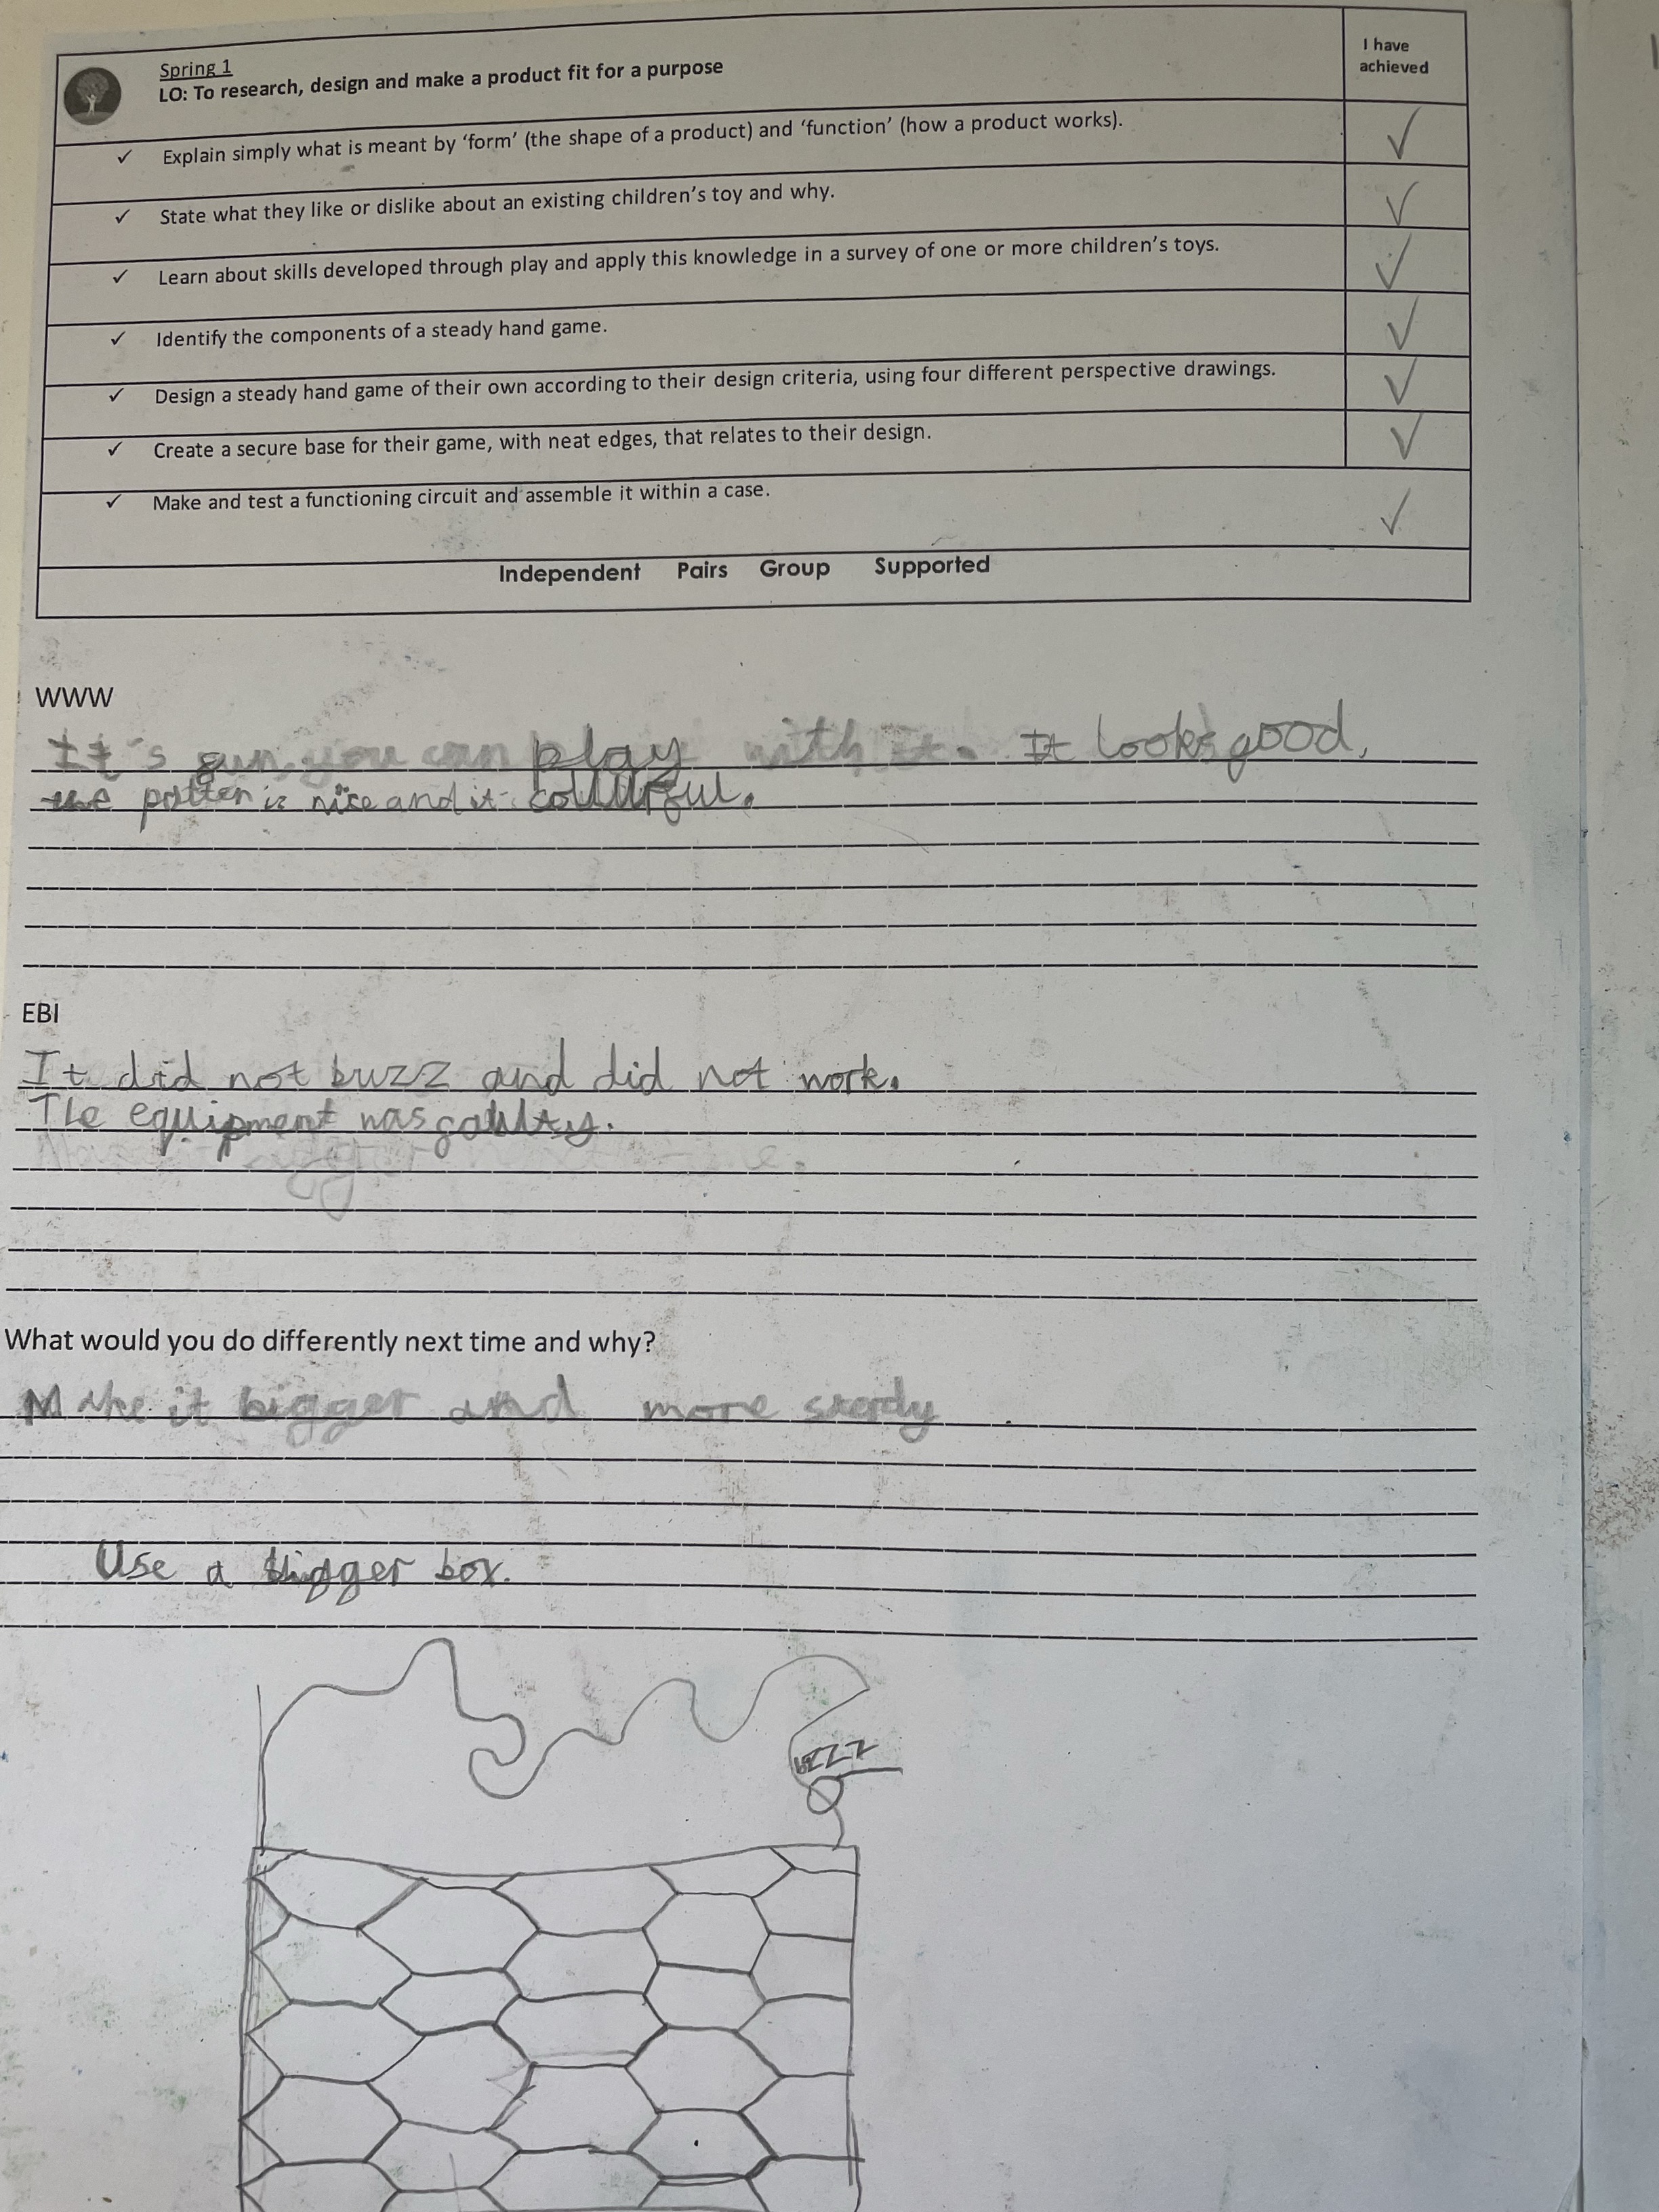 Spring 1
I have
achieved
LO: To research, design and make a product fit for a purpose
✓ Explain simply what is meant by ‘form’ (the shape of a product) and ‘function’ (how a product works). ✓
✓ State what they like or dislike about an existing children’s toy and why. ✓
✓ Learn about skills developed through play and apply this knowledge in a survey of one or more children’s toys. ✓
✓ Identify the components of a steady hand game. ✓
✓ Design a steady hand game of their own according to their design criteria, using four different perspective drawings. ✓
✓ Create a secure base for their game, with neat edges, that relates to their design. ✓
✓ Make and test a functioning circuit and assemble it within a case. ✓
Independent Pairs Group Supported
WWW
It's you can play with it. It looks good,
the is nice and it
EBI
It did not buzz and did not work.
The equipment was
What would you do differently next time and why?
Make it bigger and more
Use a bigger box.